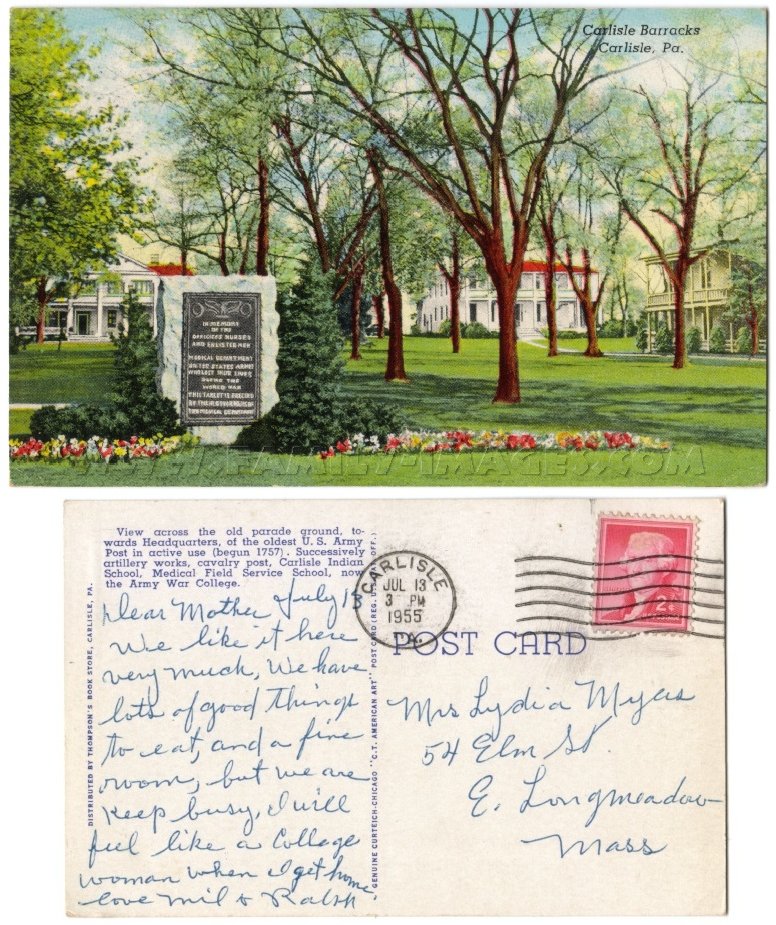 Carlisle Barracks
Carlisle, Pa.
IN MEMORY
OF THE
OFFICERS NURSES
AND ENLISTED MEN
MEDICAL DEPARTMENT
UNITED STATES ARMY
WHO LOST THEIR LIVES
DURING THE
WORLD WAR
THIS TABLET IS ERECTED
BY THEIR COMRADES OF
THE MEDICAL DEPARTMENT
WWW.FAMILY-IMAGES.COM
View across the old parade ground, to-
wards Headquarters, of the oldest U. S. Army
Post in active use (begun 1757). Successively
artillery works, cavalry post, Carlisle Indian
School, Medical Field Service School, now
the Army War College.
DISTRIBUTED BY THOMPSON'S BOOK STORE, CARLISLE, PA.
Dear Mother July 13
We like it here
very much, We have
lots of good things
to eat, and a fine
room, but we are
keep busy, I will
feel like a College
woman when I get home
love Mil & Ralph
GENUINE CURTEICH-CHICAGO "C.T. AMERICAN ART" POST CARD (REG. U.S. PAT. OFF.)
CARLISLE
JUL 13
3 PM
1955
PA.
2¢
POST CARD
Mrs Lydia Myers
54 Elm St.
E. Longmeadow
Mass